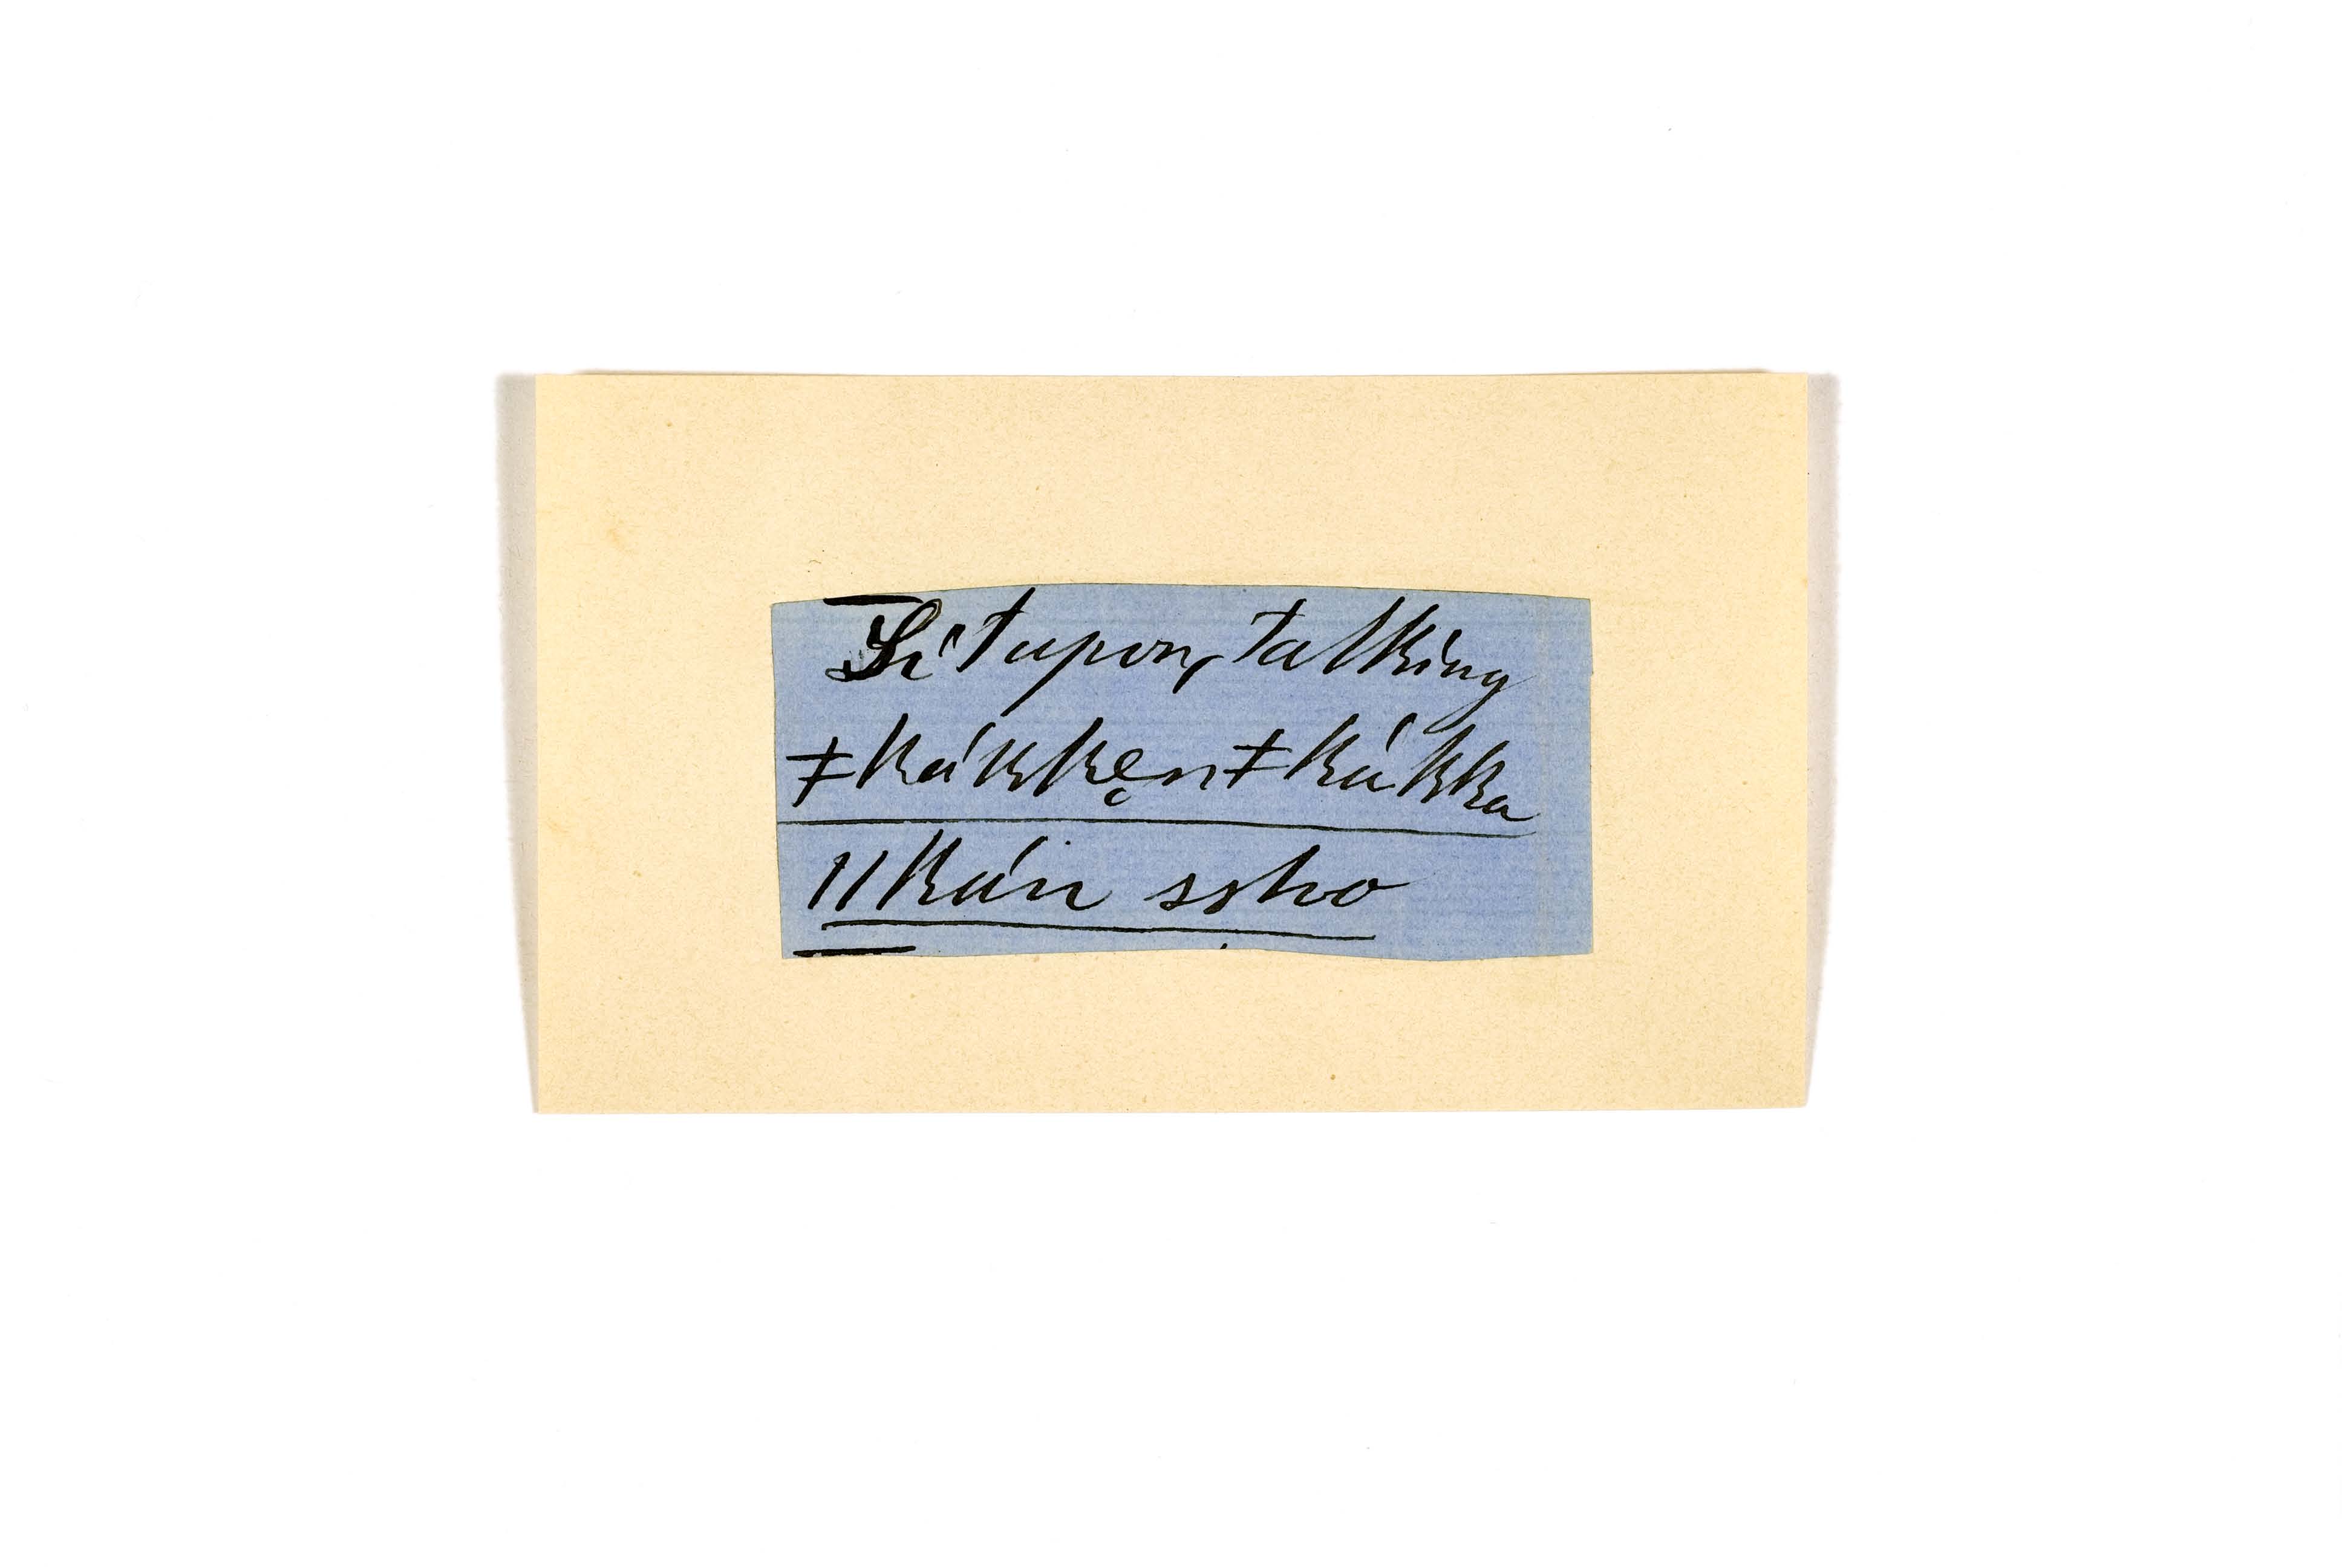 Sit upon, talking
ǂkákkęnǂkákka
ǁkán ssho